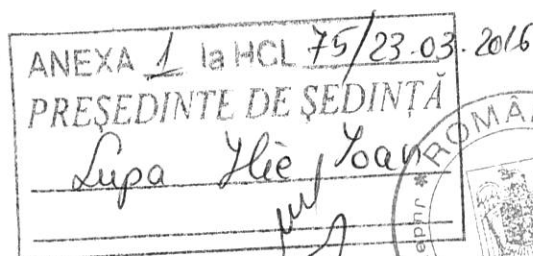 ANEXA 1 la HCL 75/23.03.2016
PREȘEDINTE DE ȘEDINȚĂ
Lupa Ilie Ioan
ROMÂ
Jude